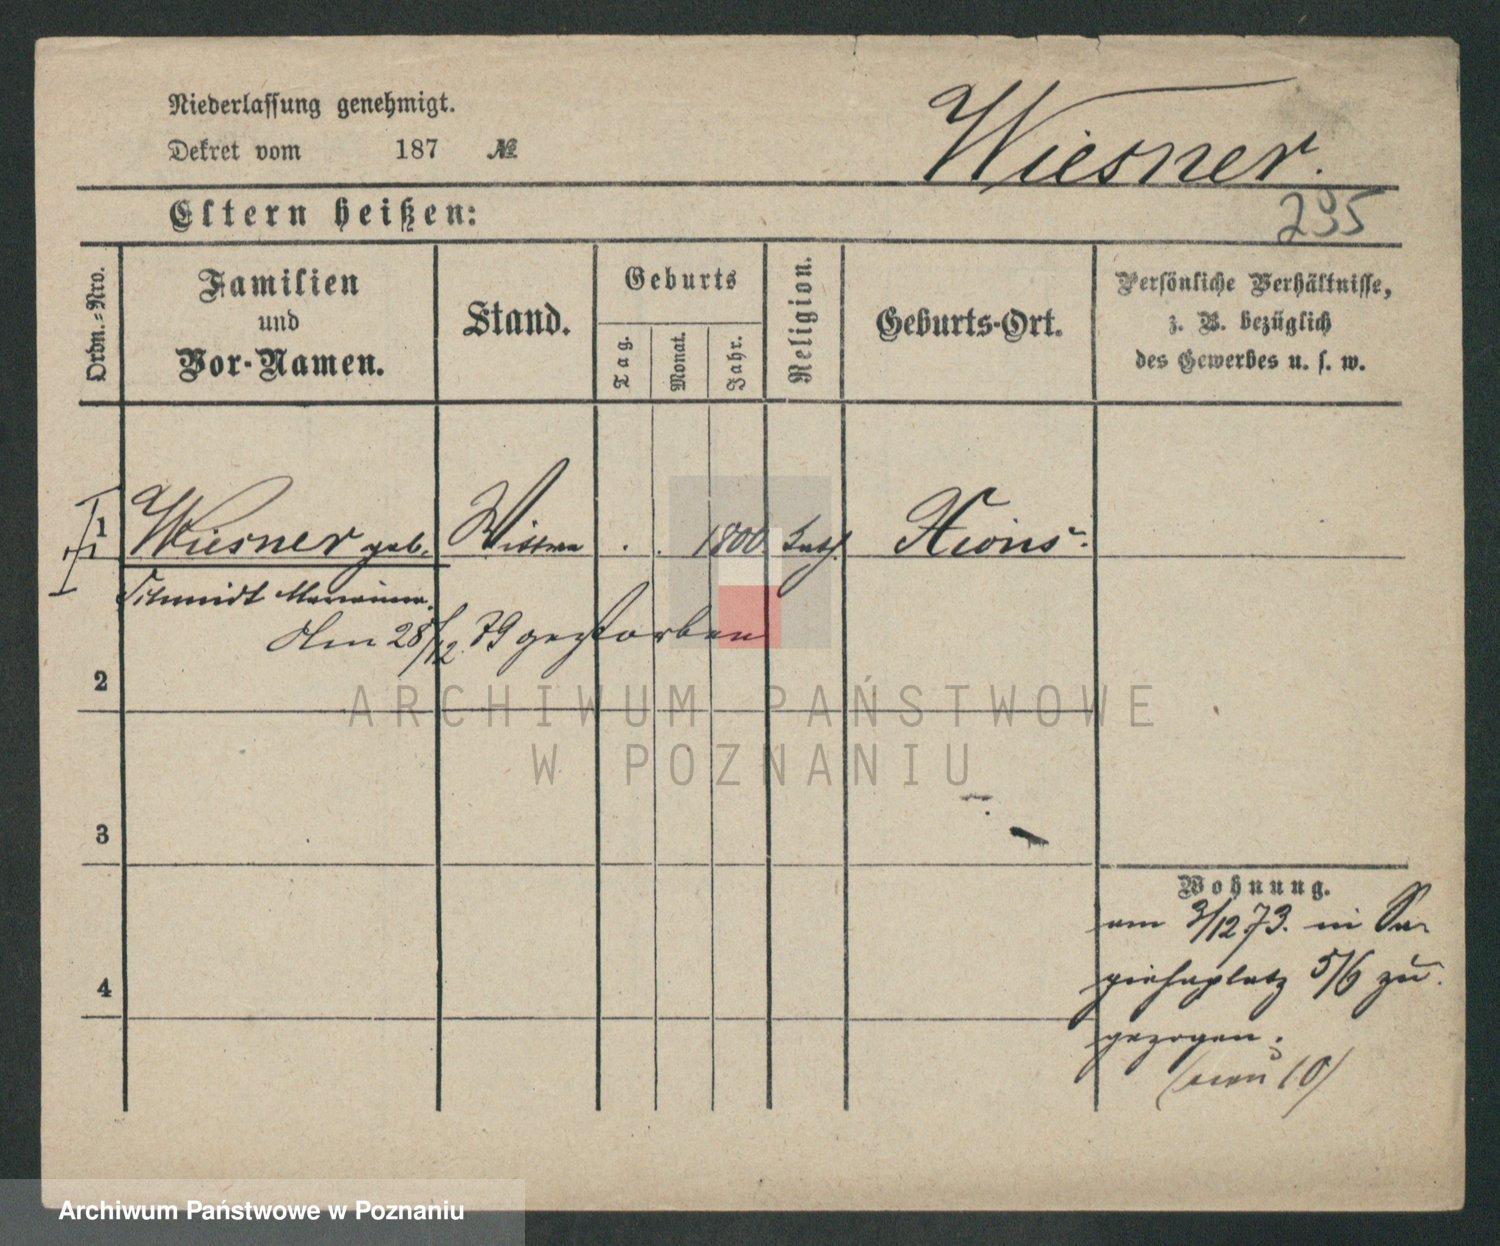 Niederlassung genehmigt.
Dekret vom 187 №
Wiesner.
Eltern heißen:
235
Ordn.-Nro.
Familien
und
Vor-Namen.
Stand.
Geburts
Tag.
Monat.
Jahr.
Religion.
Geburts-Ort.
Persönliche Verhältnisse,
z. B. bezüglich
des Gewerbes u. s. w.
1 Wiesner geb. Wittwe . . 1800 kath. Xions.
Schmidt Marianna.
Am 28/12. 79 gestorben
2
ARCHIWUM PAŃSTWOWE
W POZNANIU
3
Wohnung.
am 3/12 73. in Sa-
piehaplatz 5/6 zu
gezogen.
(neu 10)
4
Archiwum Państwowe w Poznaniu